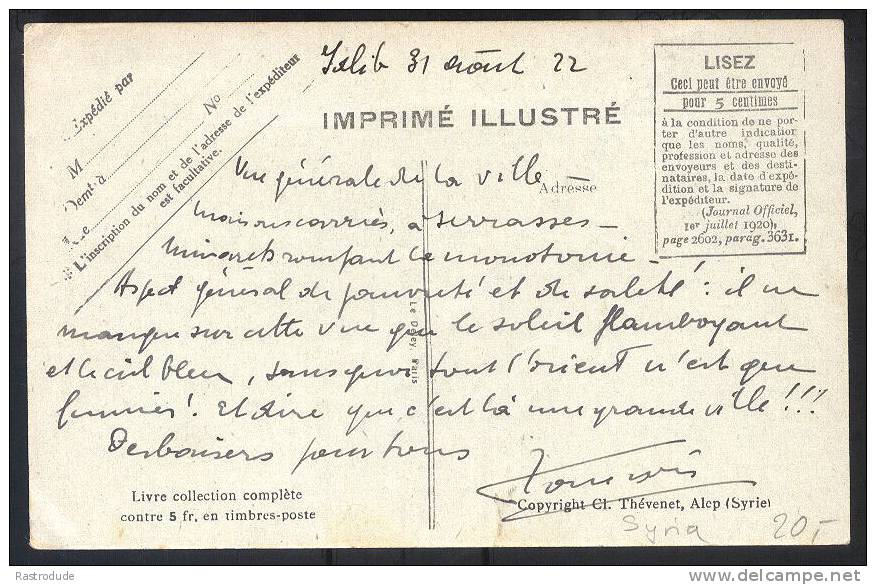 Idlib 31 Août 22
Expédié par
M
No
Demt à
Le
L'inscription du nom et de l'adresse de l'expéditeur
est facultative.
IMPRIMÉ ILLUSTRÉ
LISEZ
Ceci peut être envoyé
pour 5 centimes
à la condition de ne por-
ter d'autre indication
que les noms, qualité,
profession et adresse des
envoyeurs et des desti-
nataires, la date d'expé-
dition et la signature de
l'expéditeur.
(Journal Officiel,
1er juillet 1920),
page 2602, parag. 3631.
Adresse
Vue générale de la ville
Maisons carrées, à terrasses -
Minarets rompant la monotonie -
Aspect général de pauvreté et de saleté : il ne
manque sur cette vue que le soleil flamboyant
et le ciel bleu, sans quoi tout l'orient n'est que
fumier ! Et dire que c'est là une grande ville !!!
Des baisers pour tous
Le Deley, Paris
Livre collection complète
contre 5 fr. en timbres-poste
Copyright Cl. Thévenet, Alep (Syrie)
Syria 20,-
Rastrodude
delcampe.net